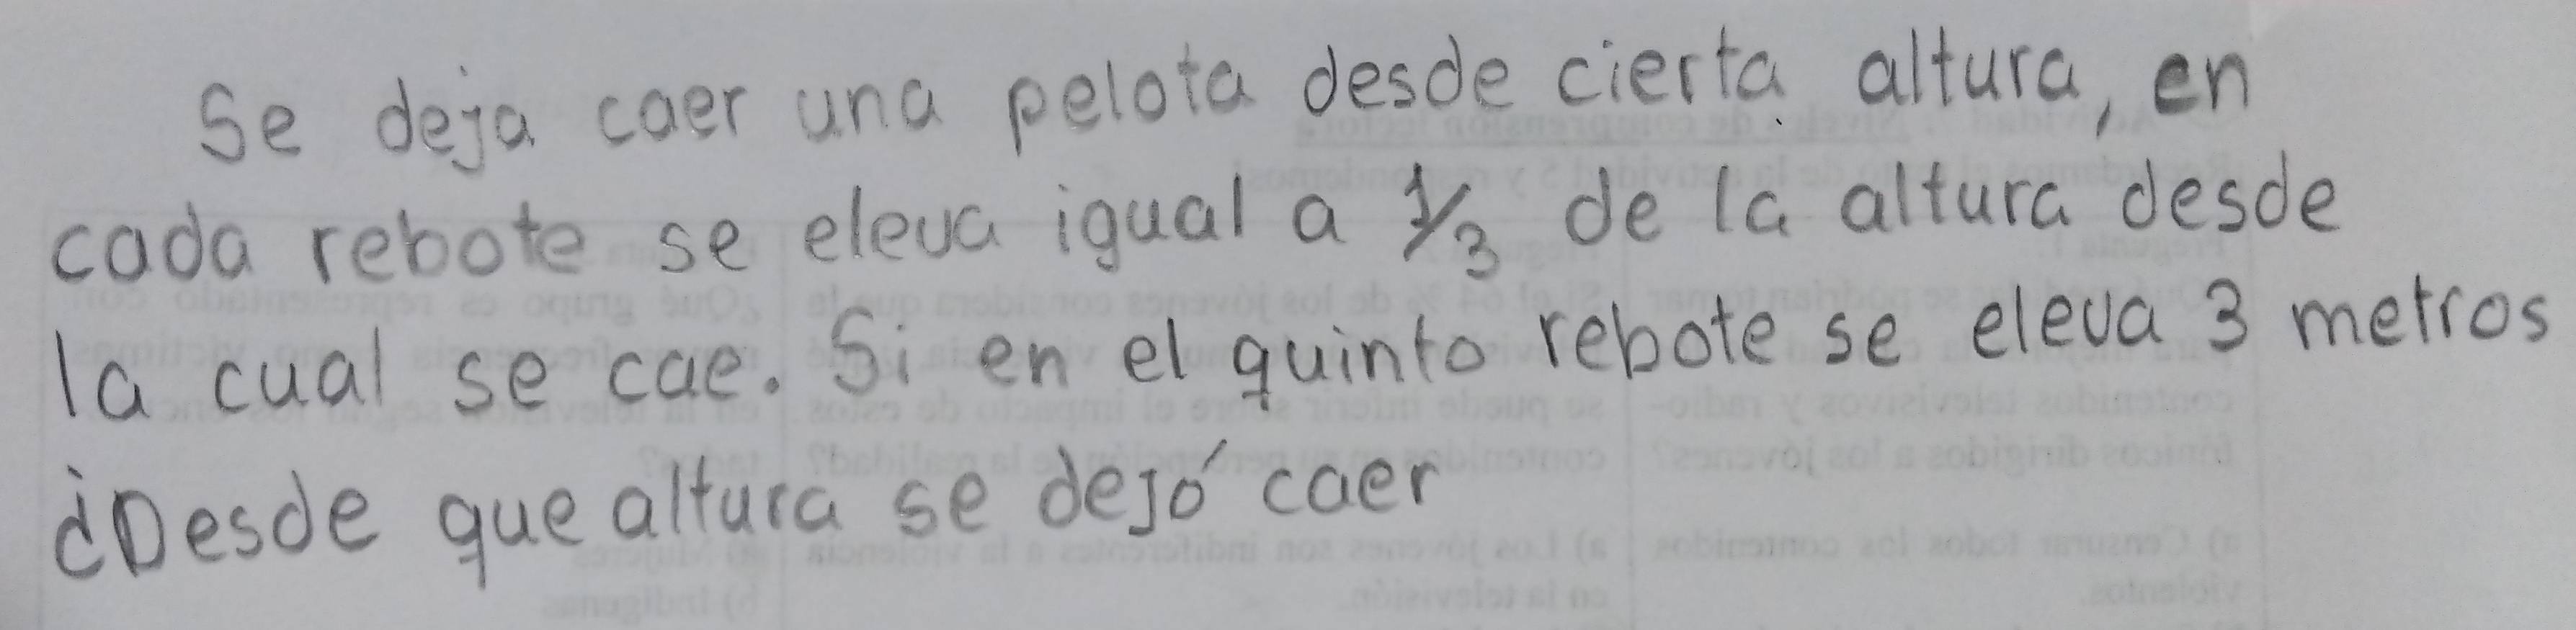 Se deja caer una pelota desde cierta altura, en
cada rebote se eleva igual a 1/3 de la altura desde
la cual se cae. Si en el quinto rebote se eleva 3 metros
¿Desde que altura se dejó caer